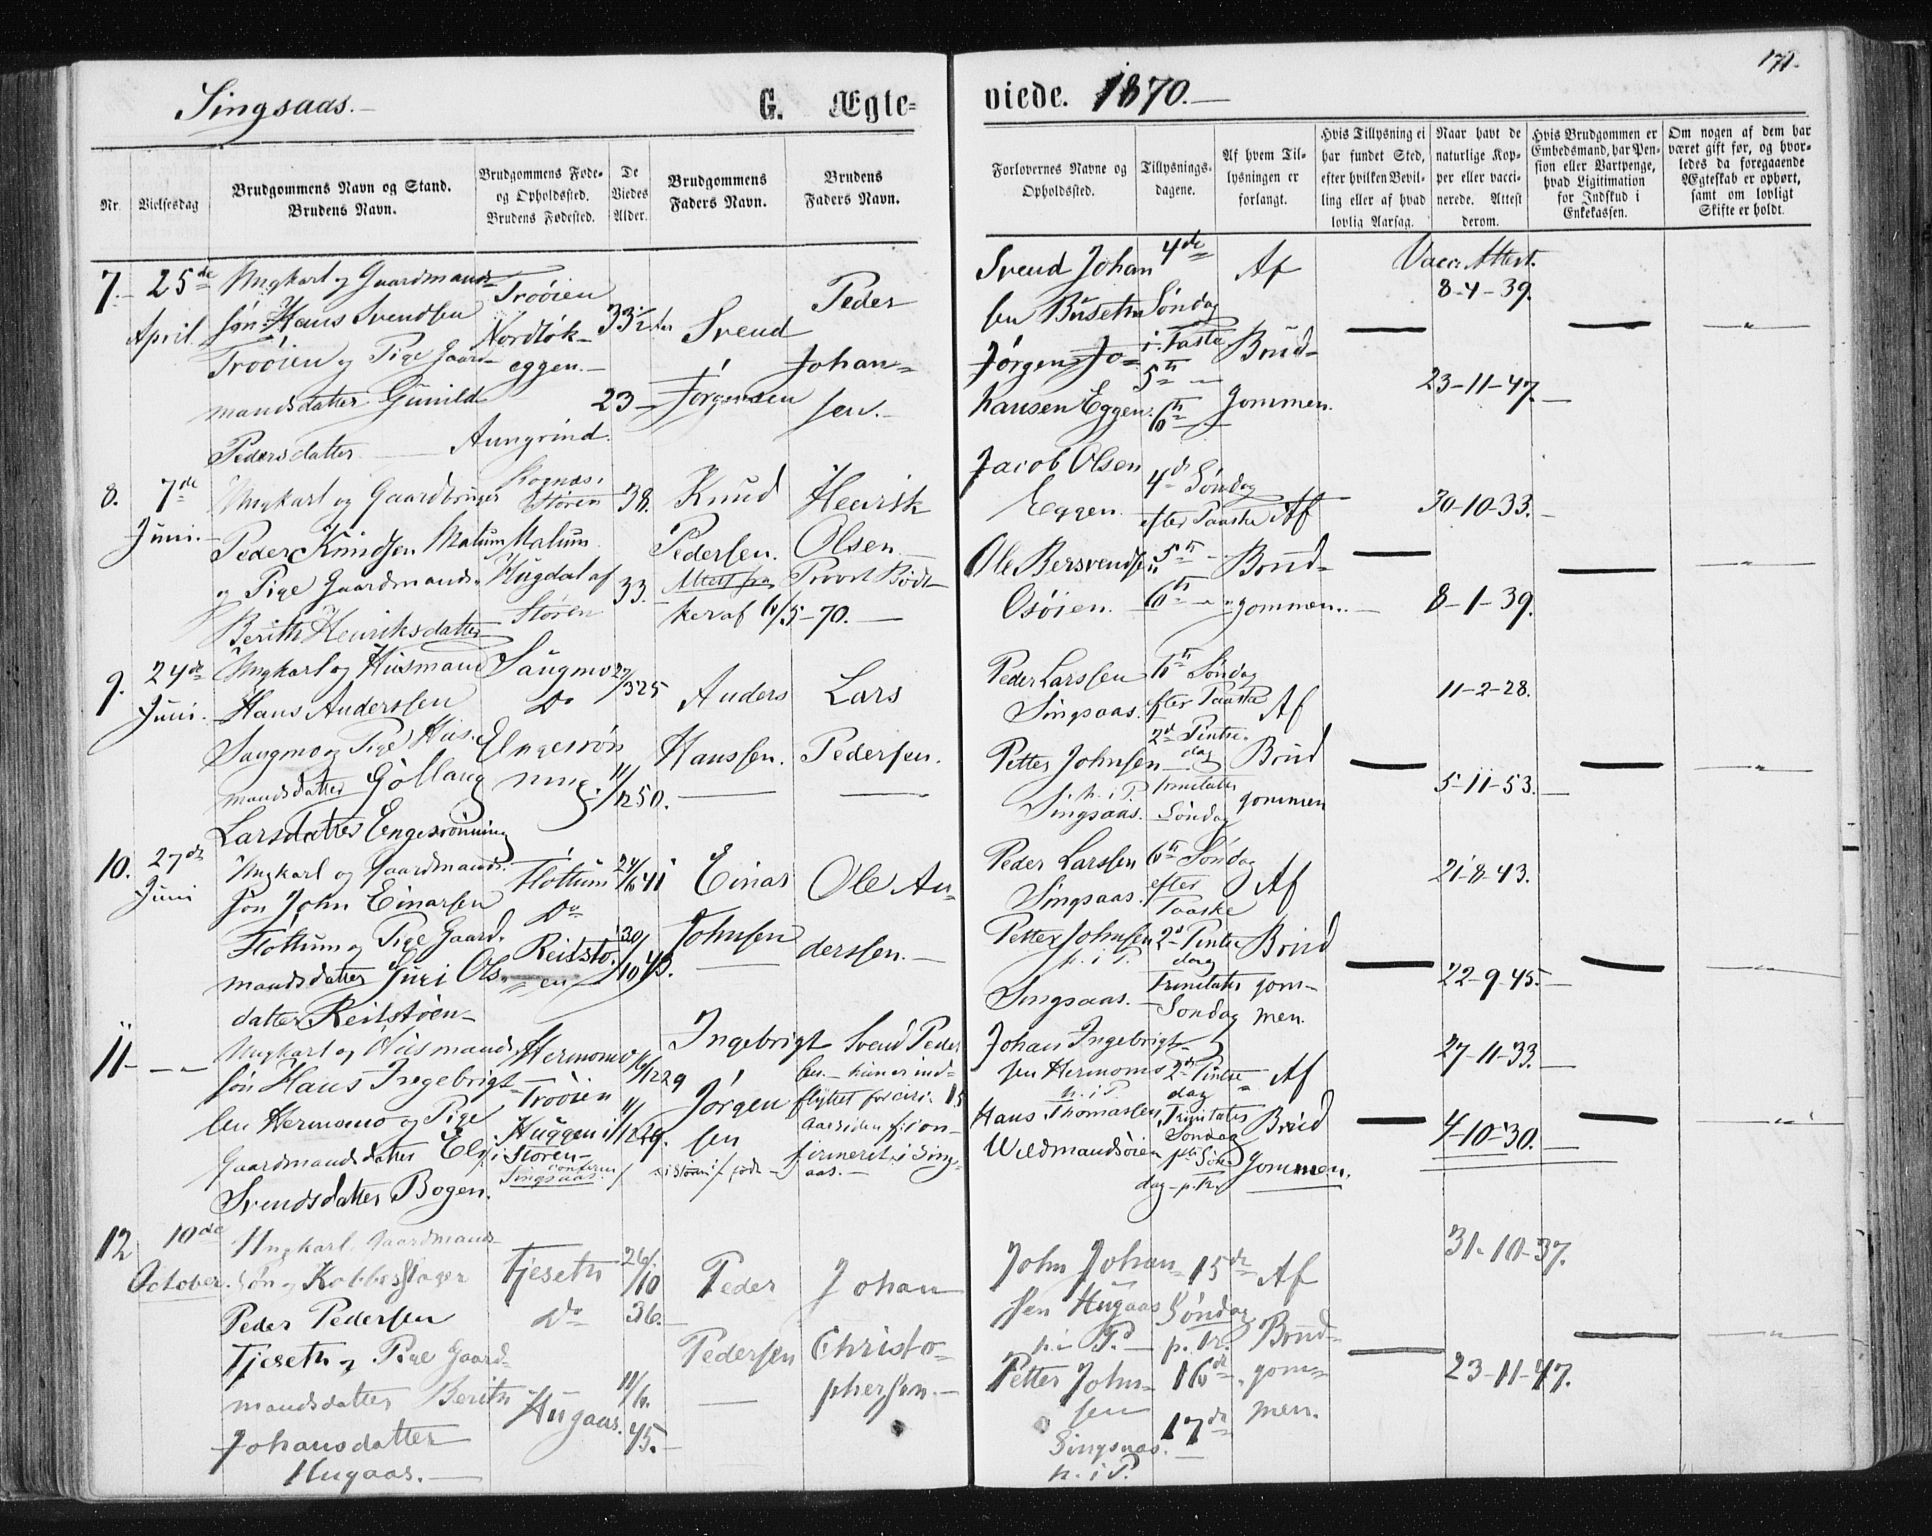 Singsaas.
G. Ægte=
viede. 1870.
171.
Nr.
Vielsesdag
Brudgommens Navn og Stand.
Brudens Navn.
Brudgommens Føde-
og Opholdssted.
Brudens Fødested.
De
Viedes
Alder.
Brudgommens
Faders Navn.
Brudens
Faders Navn.
Forlovernes Navne og
Opholdssted.
Tillysnings-
dagene.
Af hvem Til-
lysningen er
forlangt.
Hvis Tillysning ei
har fundet Sted,
efter hvilken Bevil-
ling eller af hvad
lovlig Aarsag.
Naar havt de
naturlige Kop-
per eller vacci-
nerede. Attest
derom.
Hvis Brudgommen er
Embedsmand, har Pen-
sion eller Vartpenge,
hvad Ligitimation
for Indskud i
Enkekassen.
Om nogen af dem har
været gift før, og hvor-
ledes da foregaaende
Ægteskab er ophørt,
samt om lovligt
Skifte er holdt.
7. 25de
April
Ungkarl og Gaardmands
søn Hans Svendsen
Troøien og Pige Gaard-
mandsdatter Gunild
Pedersdatter
Troøien
Nordløk-
eggen.
Aungrind.
33½
23
Svend
Jørgensen
Peder
Johan=
sen.
Svend Johan
sen Busetn
Jørgen Jo=
hansen Eggen.
4de
Søndag
i Faste
5te
6te
Af
Brud-
gommen.
Vacc. Attest.
8-4-39.
23-11-47.
8. 7de
Juni.
Ungkarl og Gaardbruger
Peder Knudsen Malum
og Pige Gaardmands.
Berith Henriksdatter
Rognæs i
Støren
Malum
Hugdal af
Støren
38.
33.
Knud
Pedersen.
Henrik
Olsen
Attest fra Provst Bødt
ker af 6/5-70.
Jacob Olsen
Eggen
Ole Bersvendsen
Osøien.
4de Søndag
efter Paaske
5te
6te
Af
Brud-
gommen.
30-10-33.
8-1-39.
9. 24de
Juni.
Ungkarl og Husmand
Hans Anderssen
Saugmo og Pige Hus.
mandsdatter Gollaug
Larsdatter Engesrønning
Saugmo
Do
Engesrøn
ning.
27/3 25
11/12 50.
Anders
Hanssen.
Lars
Pedersen.
Peder Larssen
Singsaas.
Petter Johnsen
h. i P.
Singsaas.
6te Søndag
efter Paaske
2d Pintse
dag
Trinitatis
Søndag
Af
Brud
gommen
11-2-28.
5-11-53.
10. 27de
Juni
Ungkarl og Gaardmands.
søn John Einarsen
Flottum og Pige Gaard.
mandsdatter Guri Ols.
datter Reitstøen
Flottum
Do
Reitstø-
en
24/6 41
30/10 43.
Einar
Johnsen
Ole An-
derssen.
Peder Larssen
Singsaas.
Petter Johnsen
h. i P.
Singsaas.
6te Søndag
efter
Paaske
2d Pintse
dag
Trinitatis
Søndag
Af
Brud
gom-
men.
21-8-43.
22-9-45.
11
Ungkarl og Husmands
søn Hans Ingebrigt-
sen Hermomo og Pige
Gaardmandsdatter Eli
Svendsdatter Bogen.
Hermomo
Troøien
Huggen i
Støren
Singsaas.
16/12 29
11/12 29.
Ingebrigt
Jørgen
sen
Svend Peder
sen - hun er ind-
flyttet for circ. 15
Aar siden
firmeret i Sing-
aas.
Johan Ingebrigt-
sen Hermomo
h. i P.
Hans Thomassen
Vildmandsøien
2den Pintse
dag
Trinitatis
Søndag
Af
Brud
gommen.
27-11-33.
4-10-30.
12 10de
October.
Ungkarl. Gaardmands-
søn og Kobberslager
Peder Pedersen
Fjeseth og Pige Gaard-
mandsdatter Berith
Johansdatter
Hugaas.
Fjeseth
Do
Hugaas.
26/10
36.
11/6.
45.
Peder
Pedersen
Johan
Christo-
phersen.
John Johan=
sen Hugaas
h. i P.
Petter John-
sen
Singsaas.
h. i P.
15de
Søndag
p. Tr.
16de
17de
Af
Brud-
gom-
men.
31-10-37.
23-11-47.